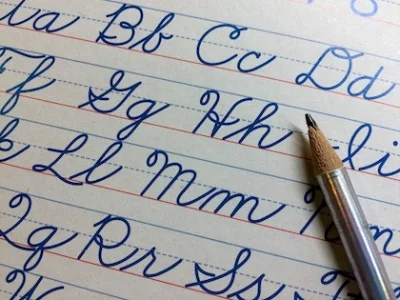 a Bb Cc Dd
Ff Gg Hh Ii
k Ll Mm Nn
Qq Rr Ss T
W